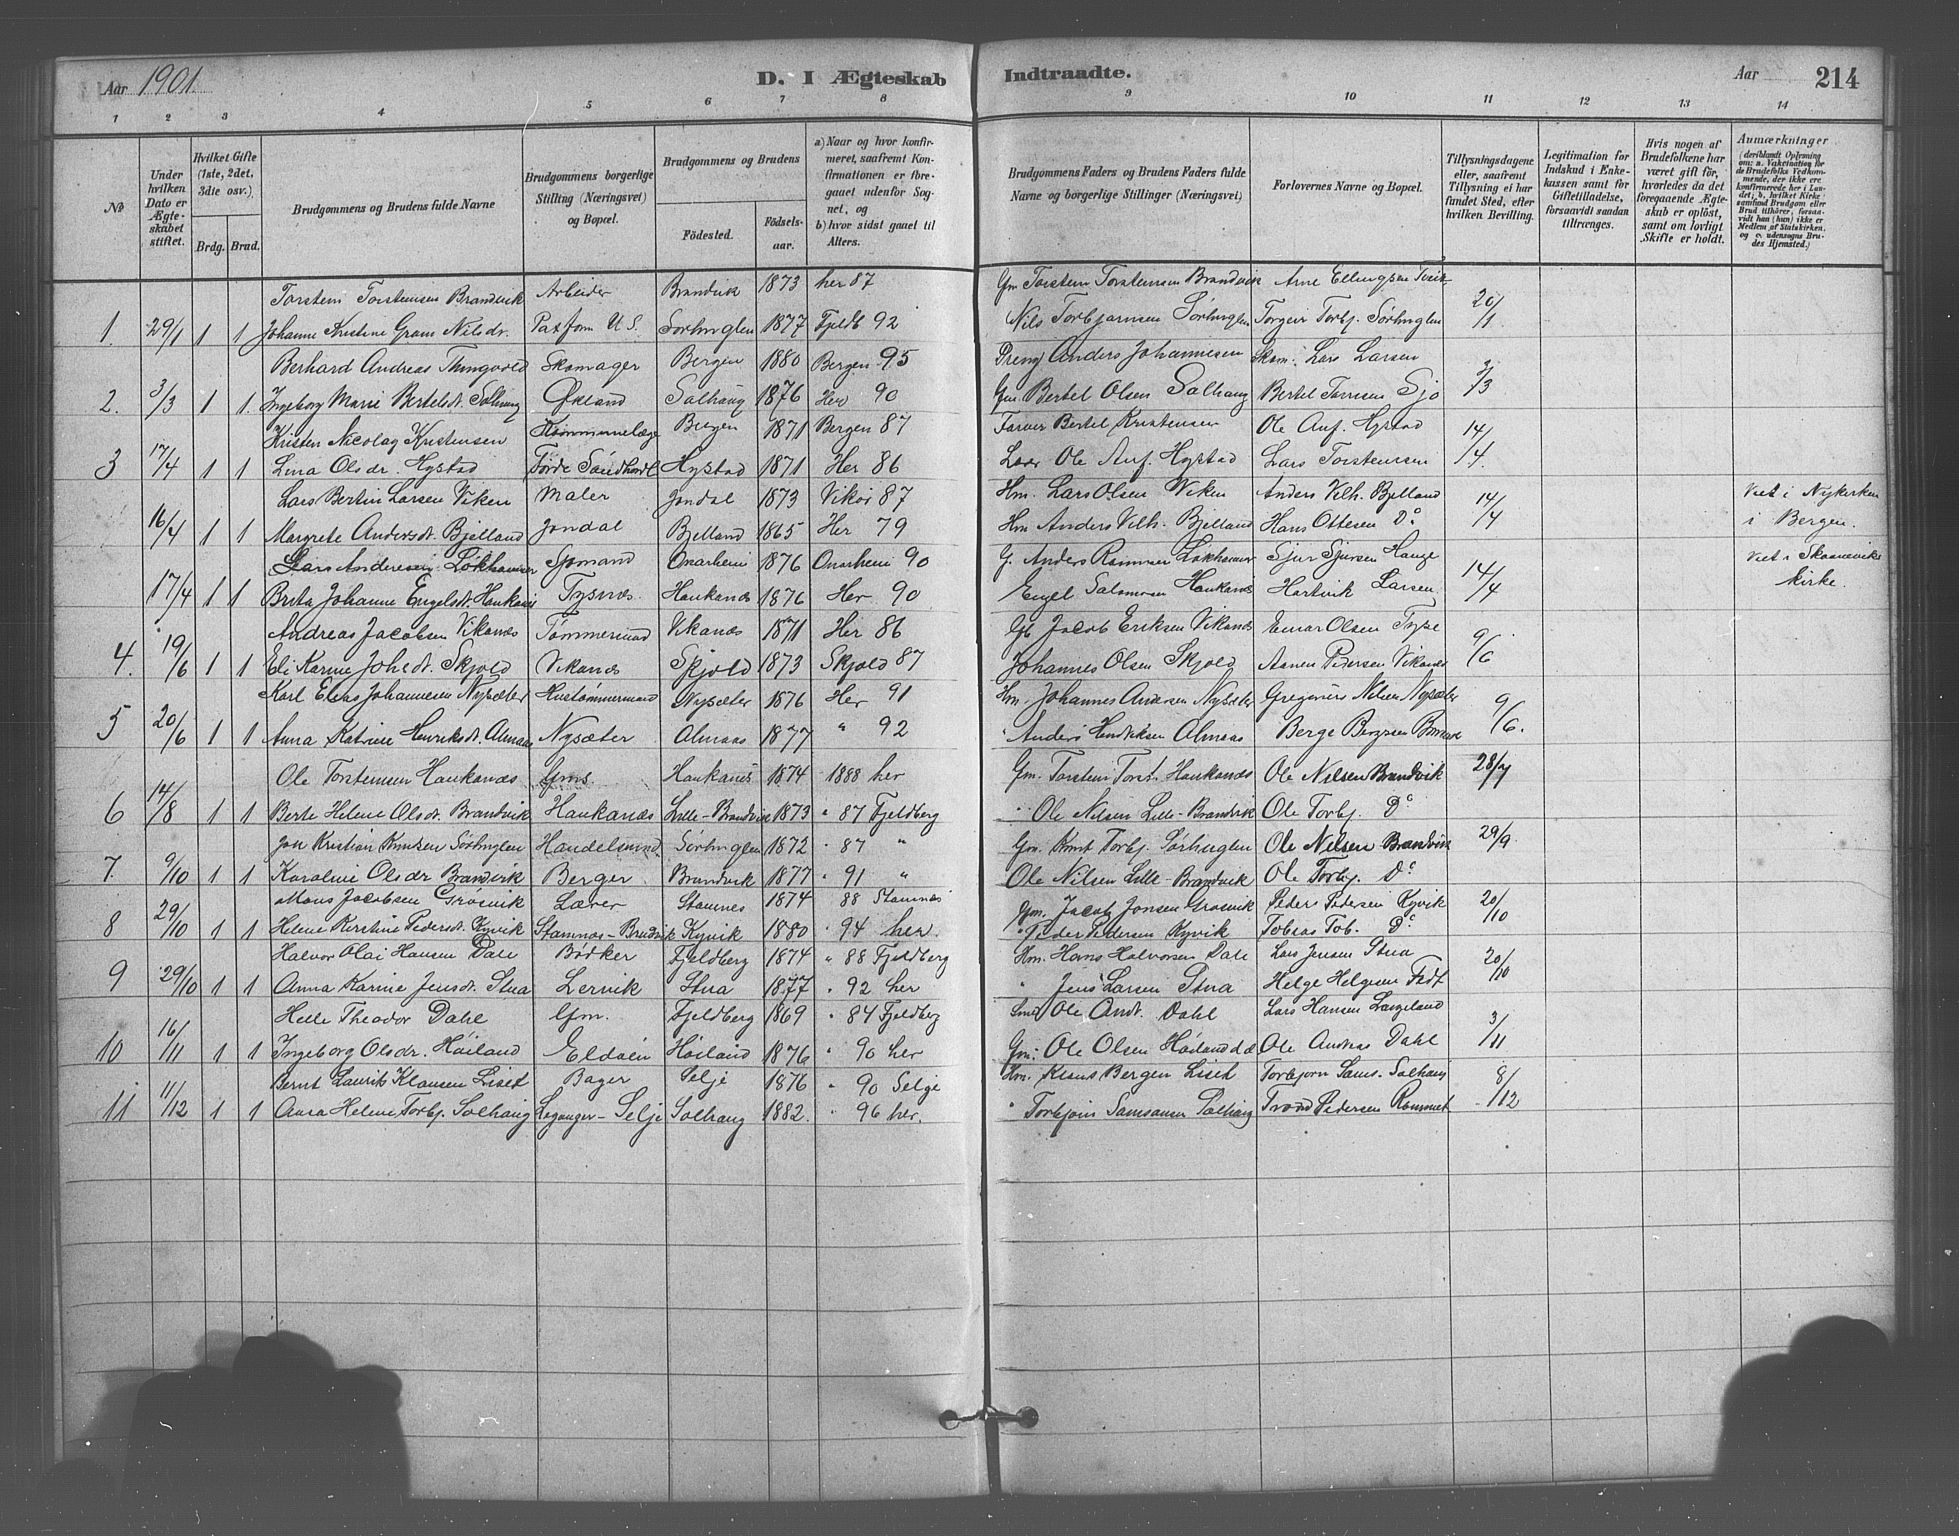 Aar 1901.
D. I Ægteskab Indtraadte.
Aar 214
1 2 3 4 5 6 7 8 9 10 11 12 13 14
No
Under hvilken Dato er Ægteskabet stiftet.
Hvilket Gifte (1ste, 2det, 3die osv.)
Brdg. Brud.
Brudgommens og Brudens fulde Navne
Brudgommens borgerlige Stilling (Næringsvei) og Bopæl.
Brudgommens og Brudens
Födested.
Födselsaar.
a) Naar og hvor konfirmeret, saafremt Konfirmationen er foregaaet udenfor Sognet, og
b) hvor sidst gaaet til Alters.
Brudgommens Faders og Brudens Faders fulde Navne og borgerlige Stillinger (Næringsvei)
Forlovernes Navne og Bopæl.
Tillysningsdagene eller, saafremt Tillysning ei har fundet Sted, efter hvilken Bevilling.
Legitimation for Indskud i Enkekassen samt for Giftetilladelse, forsaavidt saadan tiltrænges.
Hvis nogen af Brudefolkene har været gift för, hvorledes da det foregaaende Ægteskab er oplöst, samt om lovligt Skifte er holdt.
Anmærkninger
(deriblandt Oplysning om: a. Vakcination for de Brudefolks Vedkommende, der ikke ere konfirmerede her i Landet; b. hvilket Kirkesamfund Brudgom eller Brud tilhörer, forsaavidt han (hun) ikke er Medlem af Statskirken. og c. udensogns Brudes Hjemsted.)
Torstein Torsteinsen Brandvik Arbeider Brandvik 1873 her 87 Gm Torstein Torsteinsen Brandvik Arne Ellingsen
1. 29/1 1 1 Johanne Kristine Gram Nilsdr. U.S. Sørhuglen 1877 Fjeldb 92 Nils Torbjørnsen Sørhuglen Torgeir Torbj. Sørhuglen 20/1
Berhard Andreas Skomager Bergen 1880 Bergen 95 Anders Johannesen Skom. Lars Larsen
2. 3/3 1 1. Ingeborg Marie Bertelsdt. Solhaug Økland Solhaug 1876 Her 90 Gm Bertel Olsen Solhaug Bertel Sjo 3/3
Kristen Nicolay Kristensen Kommunelæge Bergen 1871 Bergen 87 Farver Bertel Kristensen Ole Anf. Hystad
3 17/4 1 1 Lina Olsdr. Hystad Hystad 1871 Her 86 Ole Anf. Hystad Lars Torstensen 14/4
Lars Bertin Larsen Viken Maler Jondal 1873 Vikør 87 Hm. Lars Olsen Viken Anders Vilh. Bjelland Viet i Nykirken
16/4 1 1 Margrete Andersdt. Bjelland Jondal Bjelland 1865 Her 79 Hm Anders Vilh. Bjelland Hans Ottesen Do 14/4 i Bergen.
Lars Andersen Løkhammer Sjømand Onarheim 1876 Onarheim 90 G. Anders Løkhammer Sjur Sjursen Hauge Viet i Skaanevik
17/4 1 1 Brita Johanne Engelsdt. Haukanes Tysnes Haukanæs 1876 Her 90 Engel Salomonsen Haukanæs Hartvik Larsen 14/4 kirke.
Andreas Jacobsen Vikanæs Tømmermand Vikanæs 1871 Her 86 Gb Jacob Eriksen Vikanæs Einar Olsen
4. 19/6 1 1 Eli Karine Johdt. Skjold Vikanæs Skjold 1873 Skjold 87 Johannes Olsen Skjold Aanen Pedersen Vikanæs 9/6
Karl Elias Johannesen Nysæter Hustømmermand Nysæter 1876 Her 91 Hm. Johannes Andersen Nysæter Gregorius Nilsen Nysæter
5 20/6 1 1 Anna Katrine Henriksdt. Almaas Nysæter Almaas 1877 " 92 " Anders Hendriksen Almaas Berge Bergesen 9/6.
Ole Torsteinsen Haukanæs Gms. Haukanæs 1874 1888 her Gm. Torstein Torst. Haukanæs Ole Nilsen Brandvik 28/7
6 14/8 1 1 Berte Helene Olsdt. Brandvik Haukanæs Lille-Brandvik 1873 " 87 Fjeldberg " Ole Nilsen Lille-Brandvik Ole Torbj. Do
Jon Kristian Knutsen Sørhuglen Handelsmand Sørhuglen 1872 " 87 " Gm. Knut Torbj. Sørhuglen Ole Nilsen Brandvik 29/9.
7. 9/10 1 1 Karoline Olsdr Brandvik Berger Brandvik 1877 " 91 " Ole Nilsen Lille-Brandvik Ole Torbj. Do
Mons Jacobsen Grøsvik Lærer Stamnes 1874 88 Stamnes Gm. Jacob Jonsen Grøsvik Peder Pedersen Kyvik
8 29/10 1 1 Helene Kirstine Pedersdt. Kyvik Stamnæs-Bruvik Kyvik 1880 " 94 her. " Peder Pedersen Kyvik Tobias Tob. Do 20/10
Halvor Olai Hansen Dale Bødker Fjeldberg 1874 " 88 Fjeldberg Hm. Hans Halvorsen Dale Lars Jensen Stua
9 29/10 1 1 Anna Karine Jensdt. Stua Lervik Stua 1877 " 92 her " Jens Larsen Stua Helge Helgesen 20/10
Helle Theodor Dahl Gm. Fjeldberg 1869 " 84 Fjeldberg Ole Andr. Dahl Lars Hansen Langeland
10 16/11 1 1 Ingeborg Olsdr. Høiland Eldøen Høiland 1876 " 90 her Gm. Ole Olsen Høiland Ole Andreas Dahl 3/11
Bernt Laurits Klausen Liset Bager Selje 1876 " 90 Selje Hm. Klaus Bergen Liset Torbjørn Sams. Solhaug
11 11/12 1 1 Anna Helene Torbj. Solhaug Leganger-Selje Solhaug 1882. " 96 her. " Torbjørn Samsonsen Solhaug Trond Pedersen Rommet 8/12